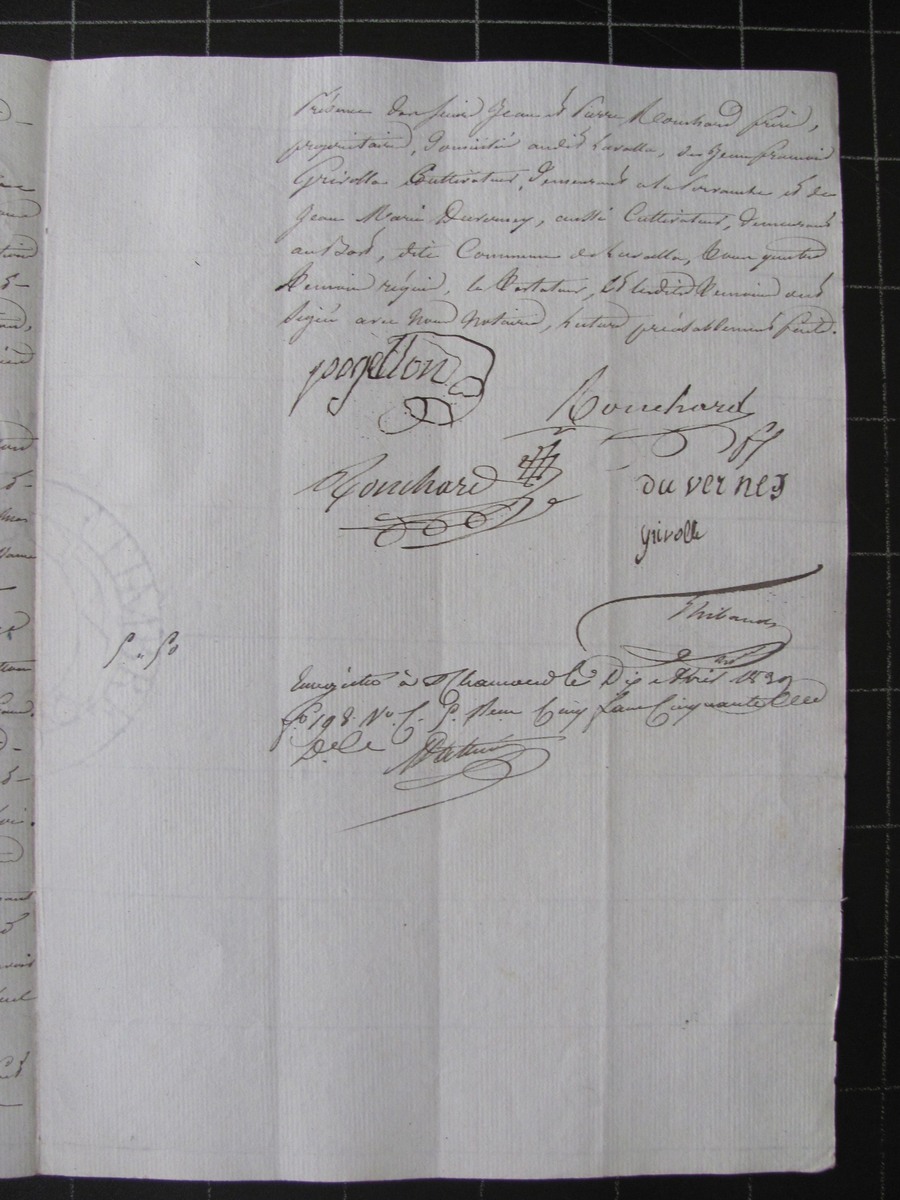 présence des sieurs Jean et Pierre Rouchard frère,
propriétaire, domicilié audit Lavalla, de Jean françois
Grivolla Cultivateur, demeurant a la et de
Jean Marie Duverney, aussi Cultivateur, demeurant
au Bost, dite Commune de Lavalla, tous quatre
témoin requis, le testateur, et lesdits témoin ont
signé avec nous notaire, lecture préalablement faite.
pogetton
Rouchard
Rouchard
du verney
grivolla
Thibaud
5 " 50
Enregistré à St Chamond le Dix Avril 1839
f.o 198. V.o C. 5. Reçu Cinq francs Cinquante